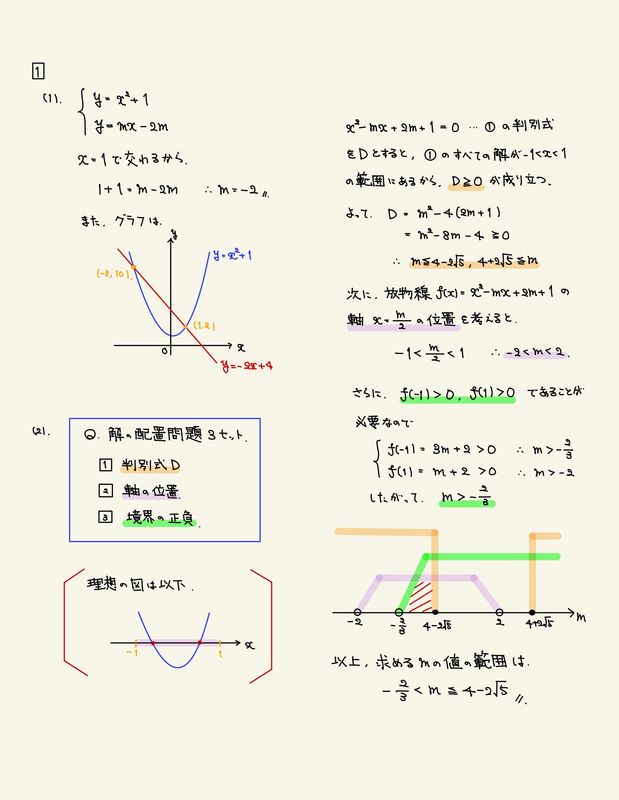 1
(1).
y = x²+1
y = mx - 2m
x=1で交わるから、
1+1 = m-2m ∴ m = -2 〃
また、グラフは、
y
y=x²+1
(-3,10)
(1,2)
0
x
y=-2x+4
(2).
Q. 解の配置問題3セット.
1 判別式D
2 軸の位置.
3 境界の正負.
理想の図は以下.
-1
1
x
x²-mx+2m+1=0 …① の判別式
をDとすると, ①のすべての解が-1<x<1
の範囲にあるから, D≧0 が成り立つ.
よって, D = m²-4(2m+1)
= m²-8m-4 ≧0
∴ m≦4-2√5, 4+2√5≦m
次に, 放物線 f(x)=x²-mx+2m+1 の
軸 x=m/2 の位置を考えると,
-1<m/2<1 ∴ -2<m<2.
さらに, f(-1)>0, f(1)>0 であることが
必要なので
f(-1) = 3m+2 >0 ∴ m>-2/3
f(1) = m+2 >0 ∴ m>-2
したがって, m>-2/3
-2
-2/3
4-2√5
2
4+2√5
m
以上, 求めるmの値の範囲は.
-2/3 < m ≦ 4-2√5 〃